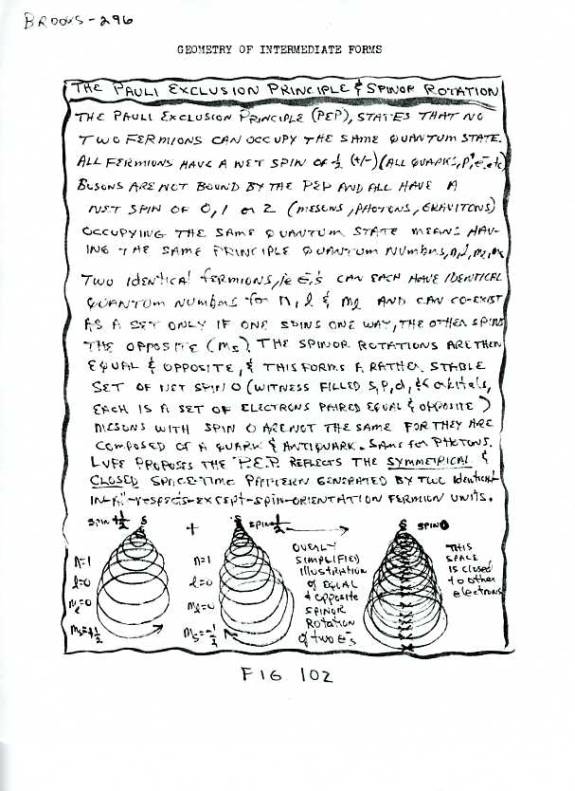 BROOKS-296
GEOMETRY OF INTERMEDIATE FORMS
THE PAULI EXCLUSION PRINCIPLE & SPINOR ROTATION
THE PAULI EXCLUSION PRINCIPLE (PEP), STATES THAT NO
TWO FERMIONS CAN OCCUPY THE SAME QUANTUM STATE.
ALL FERMIONS HAVE A NET SPIN OF ½ (+/-) (ALL QUARKS, P⁺, e⁻, etc)
BOSONS ARE NOT BOUND BY THE PEP AND ALL HAVE A
NET SPIN OF 0, 1 OR 2 (MESONS, PHOTONS, GRAVITONS)
OCCUPYING THE SAME QUANTUM STATE MEANS HAV-
ING THE SAME PRINCIPLE QUANTUM NUMBERS, n, l, ml, ms
TWO IDENTICAL FERMIONS, ie e⁻'s CAN EACH HAVE IDENTICAL
QUANTUM NUMBERS for n, l & ml AND CAN CO-EXIST
AS A SET ONLY IF ONE SPINS ONE WAY, THE OTHER SPINS
THE OPPOSITE (ms). THE SPINOR ROTATIONS ARE THEN
EQUAL & OPPOSITE, & THIS FORMS A RATHER STABLE
SET OF NET SPIN 0 (WITNESS FILLED S, P, d, & f orbitals,
EACH IS A SET OF ELECTRONS PAIRED EQUAL & OPPOSITE)
MESONS WITH SPIN 0 ARE NOT THE SAME FOR THEY ARE
COMPOSED OF A QUARK & ANTIQUARK. SAME for PHOTONS.
LUFE PROPOSES THE P.E.P. REFLECTS THE SYMMETRICAL &
CLOSED SPACE-TIME PATTERN GENERATED BY TWO Identical-
IN-All-respects-EXCEPT-SPIN-ORIENTATION FERMION UNITS.
SPIN +½ + SPIN ½ SPIN 0
n=1
l=0
ml=0
ms=+½
n=1
l=0
ml=0
ms=-½
OVERLY
SIMPLIFIED
Illustration
of EQUAL
& opposite
SPINOR
ROTATION
of two e⁻'s
THIS
SPACE
is closed
to other
electrons
FIG 102